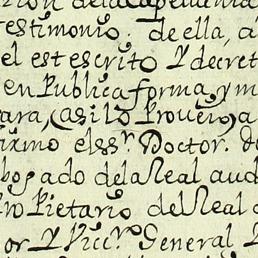 cion dela Capellania
testimonio. de ella, a
el est escrito Y decret
en Publica forma, y m
ara, (asi lo Proueio) a
firmo el ss.r Doctor. D
bogado dela Real aud
ro Pietario del Real c
or Y Vicc.ro General D